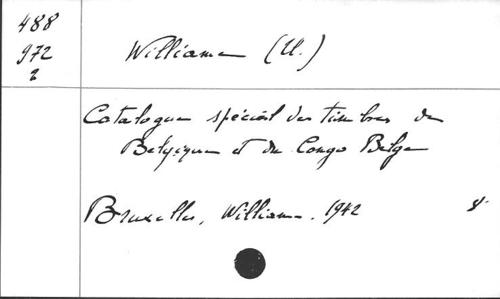 488
972
2
Williame (U.)
Catalogue spécial des timbres de
Belgique et du Congo Belge
Bruxelles, Williame. 1942 8°